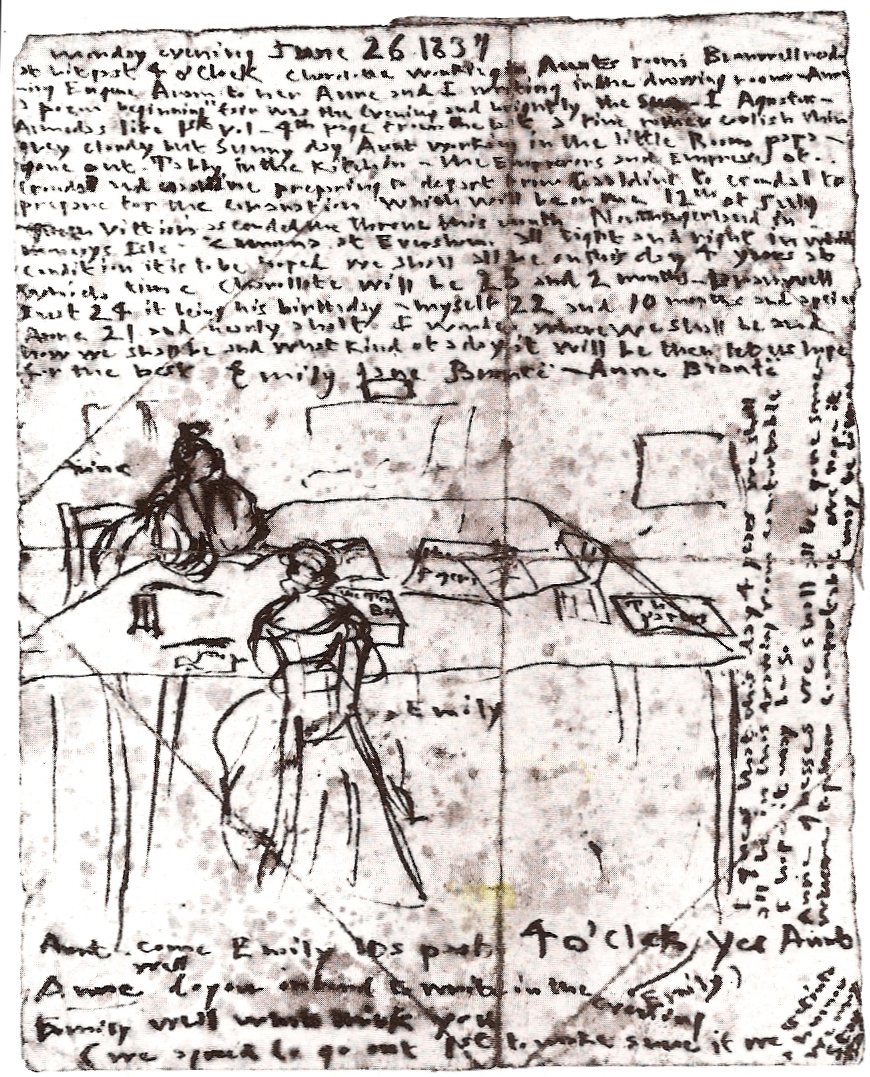 Monday evening June 26 1837
a bit past 4 o'Clock Charolotte working in Aunts room Branwell reading
Eugene Aram to her Anne and I writing in the drawing room Anne
a poem beginning "fair was the evening and brightly the Sun - I Agustus
Almedas life 1st vol - 4th page from the last a fine rather coolish thin
grey cloudy but Sunny day Aunt working in the little Room papa
gone out. Tabby in the Kitchin - the Emperors and Empresses of
Gondal and Gaaldine preparing to depart from Gaaldine to Gondal to
prepare for the coranation which will be on the 12th of July
Queen Vittiora ascended the throne this month Northangerland in
Monceys Isle - Zamorna at Eversham. all tight and right in which
condition it is to be hoped we shall all be on this day 4 years at
which time Charollote will be 25 and 2 months - Branwell
just 24 it being his birthday - myself 22 and 10 months and a peice
Anne 21 and nearly a half I wonder where we shall be and
how we shall be and what kind of a day it will be then let us hope
for the best Emily Jane Brontë - Anne Brontë
Anne
The
papers
The
papers
Emily
I guess that this day 4 years we shall
all be in this drawing room comfortable
I hope it may be so
Anne guesses we shall all be gone some
where together comfortable We hope it
may be
Aunt. come Emily Its past 4 o'Clock
Yes Aunt
Anne well do you intend to write in the evening
Emily well what think you
(we agreed to go out 1st to make sure if we